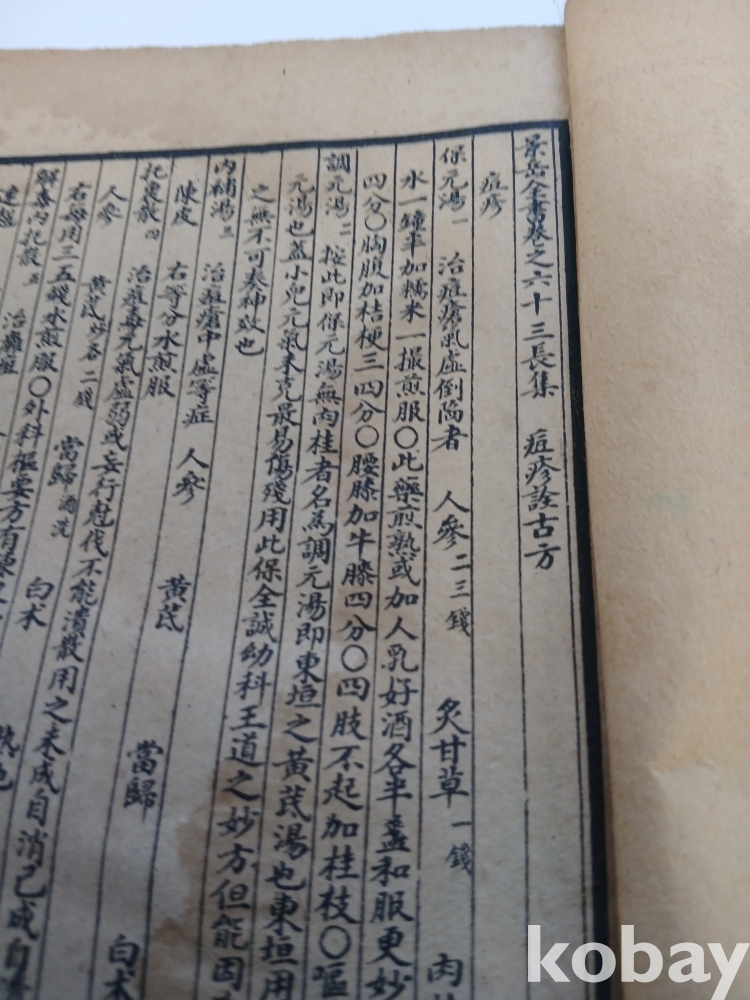 景岳全書卷之六十三長集 痘疹詮古方
痘疹
保元湯一 治痘瘡氣虛倒陷者 人參二三錢 炙甘草一錢 肉
水一鐘半加糯米一撮煎服○此藥煎熟或加人乳好酒各半盞和服更妙
四分○胸腹加桔梗三四分○腰膝加牛膝四分○四肢不起加桂枝○嘔
調元湯二 按此即保元湯無肉桂者名為調元湯即東垣之黃芪湯也東垣用
元湯也蓋小兒元氣未充最易傷殘用此保全誠幼科王道之妙方但能因
之無不可奏神效也
內補湯三 治痘瘡中虛等症 人參 黃芪 當歸 白朮
陳皮 右等分水煎服
托裏散四 治痘毒元氣虛弱或妄行尅伐不能潰散用之未成自消已成自
人參 黃芪炒各二錢 當歸酒洗 白术
右每用三五錢水煎服○外科樞要方有
解毒內托散五 治癰疽
連翹
kobay